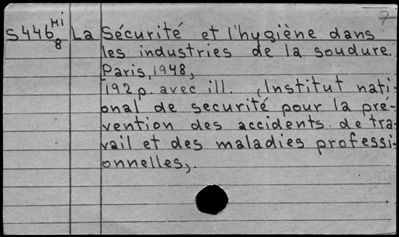 7
S446 Hi 8 La Sécurité et l'hygiène dans
les industries de la soudure.
Paris, 1948,
192p. avec ill. (Institut nati-
onal de securité pour la pre-
vention des accidents de tra-
vail et des maladies professi-
onnelles).